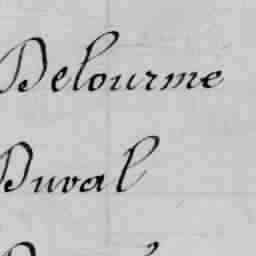 Delourme
Duval